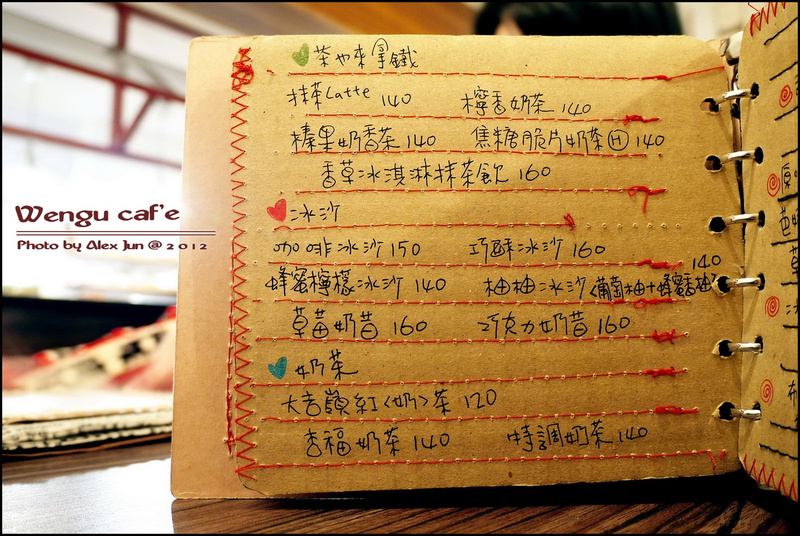 Wengu caf'e
Photo by Alex Jun @ 2012
茶也來拿鐵
抹茶Latte 140 檸香奶茶 140
榛果奶香茶 140 焦糖脆片奶茶Ⓗ 140
香草冰淇淋抹茶飲 160
冰沙
咖啡冰沙 150 巧酥冰沙 160
蜂蜜檸檬冰沙 140 柚柚冰沙<葡萄柚+蜂蜜香柚> 140
草莓奶昔 160 巧克力奶昔 160
奶茶
大吉嶺紅<奶>茶 120
杏福奶茶 140 特調奶茶 140